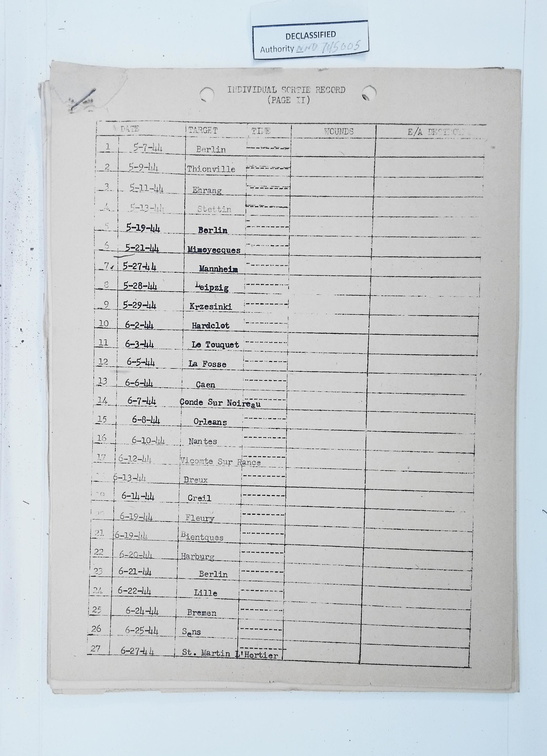 DECLASSIFIED
Authority NND 745005
INDIVIDUAL SORTIE RECORD
(PAGE II)
DATE TARGET TIME WOUNDS E/A
1 5-7-44 Berlin
2 5-9-44 Thionville
3 5-11-44 Ehrang
4 5-13-44 Stettin
5 5-19-44 Berlin
6 5-21-44 Mimoyecques
7 5-27-44 Mannheim
8 5-28-44 Leipzig
9 5-29-44 Krzesinki
10 6-2-44 Hardelot
11 6-3-44 Le Touquet
12 6-5-44 La Fosse
13 6-6-44 Caen
14 6-7-44 Conde Sur Noireau
15 6-8-44 Orleans
16 6-10-44 Nantes
17 6-12-44 Vicomte Sur Rance
6-13-44 Dreux
6-14-44 Creil
6-19-44 Fleury
21 6-19-44 Bientques
22 6-20-44 Harburg
23 6-21-44 Berlin
24 6-22-44 Lille
25 6-24-44 Bremen
26 6-25-44 Sens
27 6-27-44 St. Martin L'Hortier